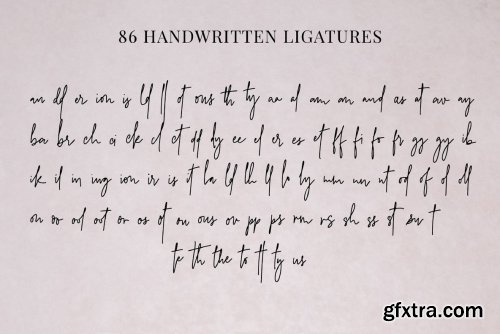 86 HANDWRITTEN LIGATURES
an dd er ion is ld ll ot ous th ty aa al am an and as at av ay
ba br ch ci ck cl ct dd dy ee el er es et ff fi fo fr gg gy ib
ik il in ing ion ir is it la ld lh ll lo ly mm nn nt od of ol oll
on oo ood oot or os ot ou ous ov pp ps rm rs sh ss st t
te th the to tt ty us
gfxtra.com